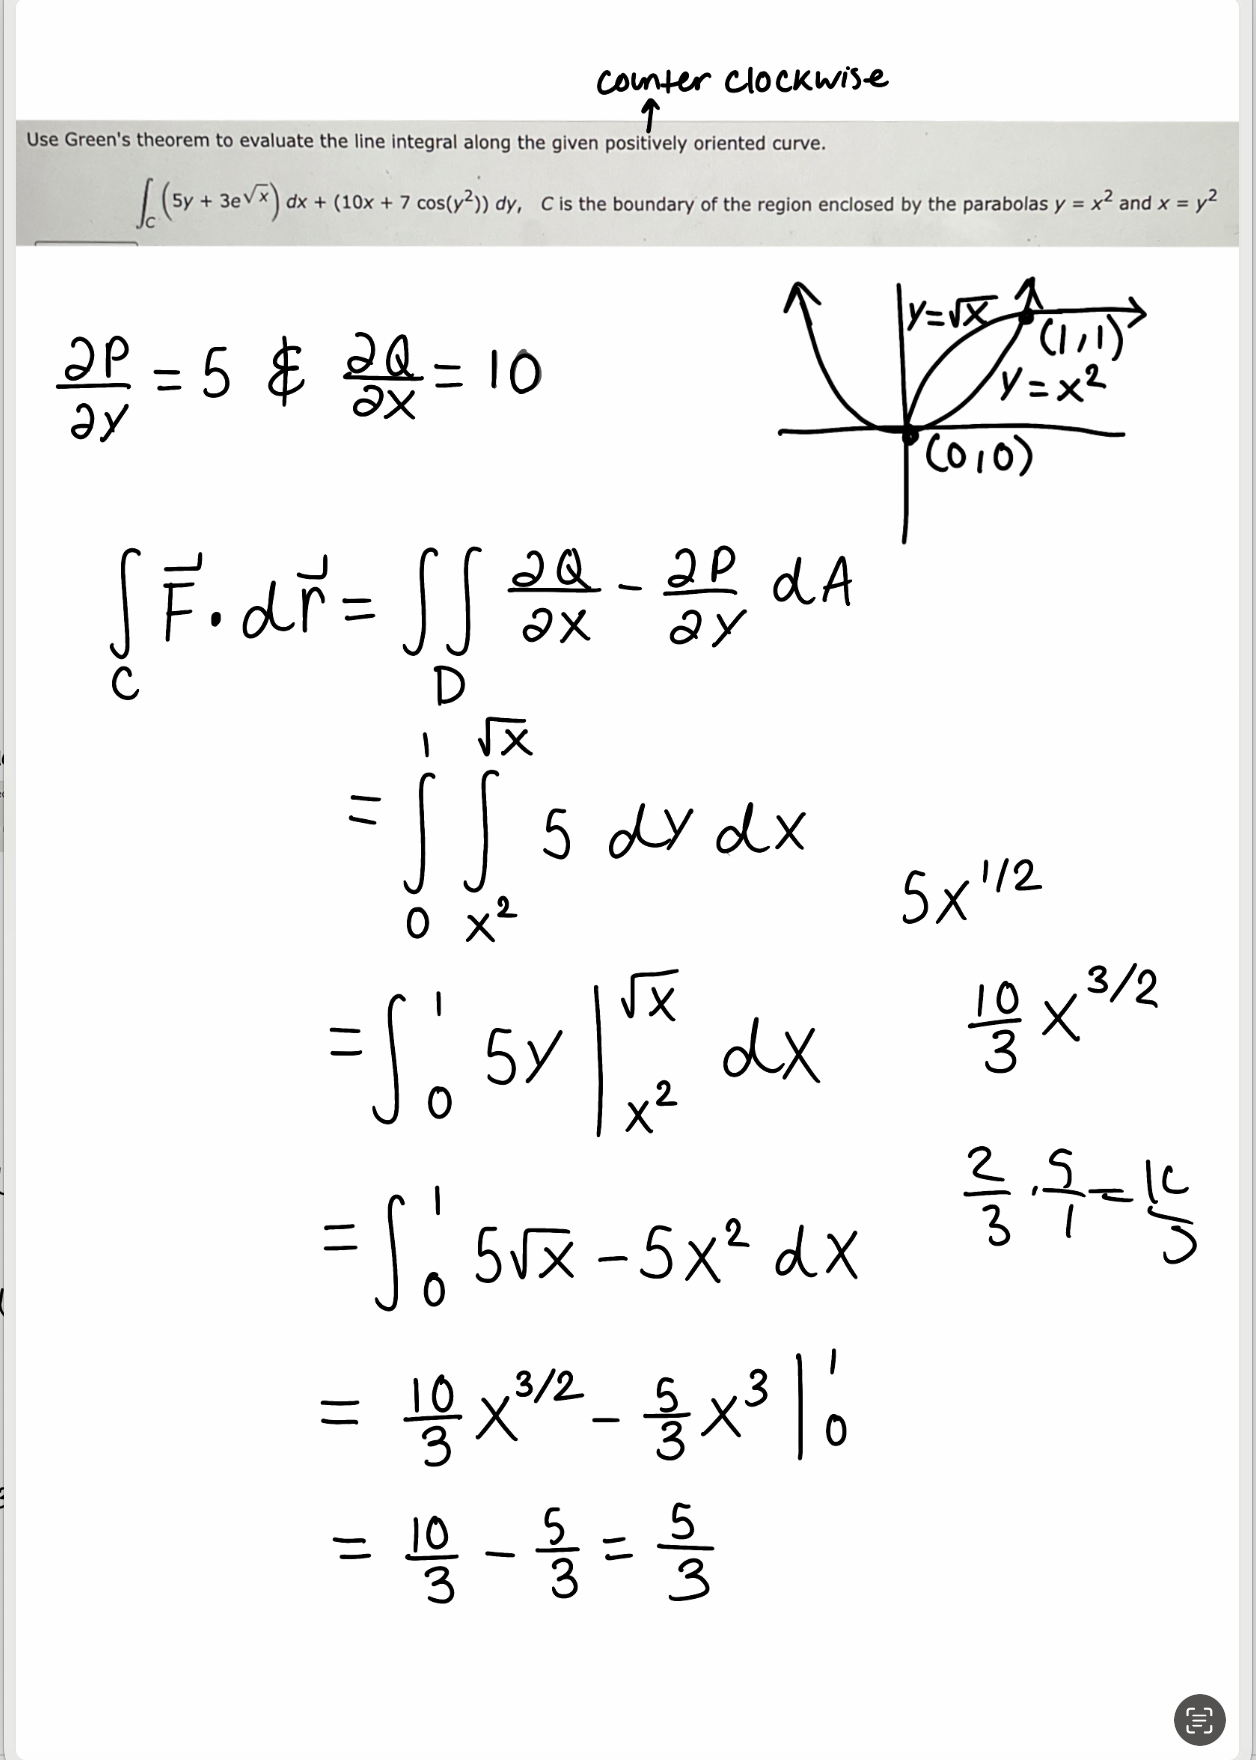 counter clockwise
↑
Use Green's theorem to evaluate the line integral along the given positively oriented curve.
∫_C (5y + 3e^√x) dx + (10x + 7 cos(y²)) dy, C is the boundary of the region enclosed by the parabolas y = x² and x = y²
y=√x
(1,1)
y=x²
(0,0)
∂P/∂y = 5 & ∂Q/∂x = 10
∫_C F⃗ · dr⃗ = ∬_D ∂Q/∂x - ∂P/∂y dA
= ∫_0^1 ∫_{x²}^{√x} 5 dy dx
5x^{1/2}
= ∫_0^1 5y |_{x²}^{√x} dx
10/3 x^{3/2}
2/3 · 5/1 = 10/3
= ∫_0^1 5√x - 5x² dx
= 10/3 x^{3/2} - 5/3 x³ |_0^1
= 10/3 - 5/3 = 5/3